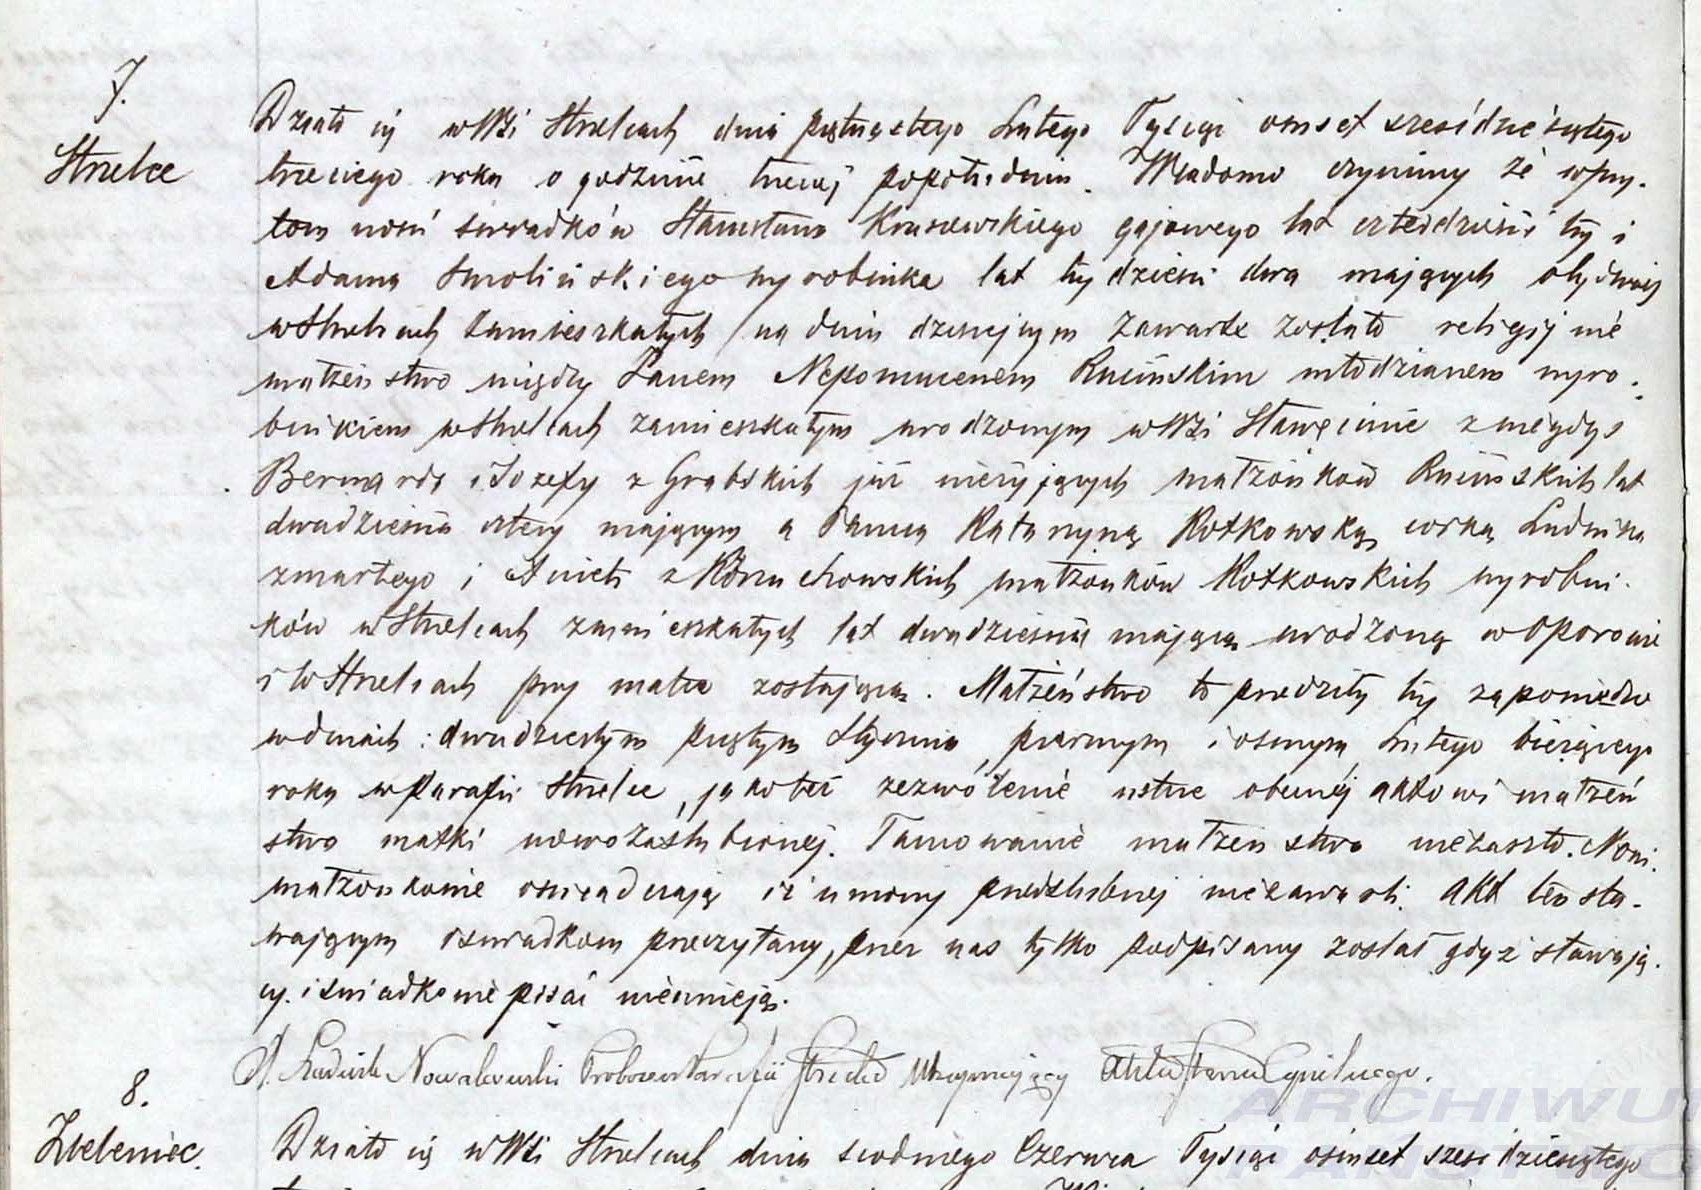 7.
Strzelce
Działo się w Wsi Strzelcach dnia piętnastego Lutego Tysiąc ośmset sześćdziesiątego
trzeciego roku o godzinie trzeciej popołudniu. Wiadomo czynimy że w przy-
tomności świadków Stanisława Kraszewskiego gajowego lat czterdzieści trzy i
Adama Smolińskiego wyrobnika lat trzydzieści dwa mających obydwóch
w Strzelcach zamieszkałych na dniu dzisiejszym zawarte zostało religijnie
małżeństwo między Janem Nepomucenem Rucińskim młodzianem wyro-
bnikiem w Strzelcach zamieszkałym urodzonym w Wsi Sławęcinie z niegdys
Bernarda i Jozefy z Grabskich już nieżyjących małżonków Rucińskich lat
dwadzieścia cztery mającym a Panną Katarzyną Kotkowską córką Ludwika
zmarłego i Anieli z małżonków Kotkowskich wyrobni-
ków w Strzelcach zamieszkałych lat dwadzieścia mającą urodzoną w Oporowie
i w Strzelcach przy matce zostającą. Małżeństwo to poprzedziły trzy zapowiedzie
w dniach: dwudziestym piątym Stycznia, pierwszym i osmym Lutego bieżącego
roku w Parafii Strzelce, jakoteż zezwolenie ustne obecnej aktowi małżeń
stwa matki nowozaślubionej. Tamowanie małżeństwa nie zaszło. Nowi-
małżonkowie oświadczają iż umowy przedślubnej nie zawarli. Akt ten sta-
wającym i świadkom przeczytany, przez nas tylko podpisany został gdyż stawają-
cy. i świadkowie pisać nieumieją.
X. Ludwik Nowalewski Proboszcz Parafii Strzelce Utrzymujący Akta Stanu Cywilnego.
8.
Zieleniec.
Działo się w Wsi Strzelcach dnia siodmego Czerwca Tysiąc ośmset sześćdziesiątego
ARCHIWU
PAŃSTWO